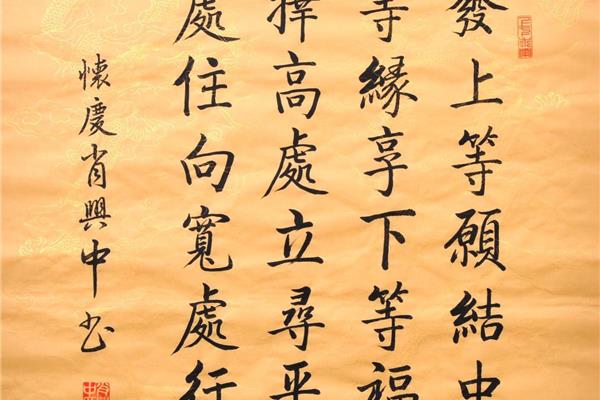 發上等願結中
等緣享下等福
擇高處立尋平
處住向寬處行
懷慶肖興中书